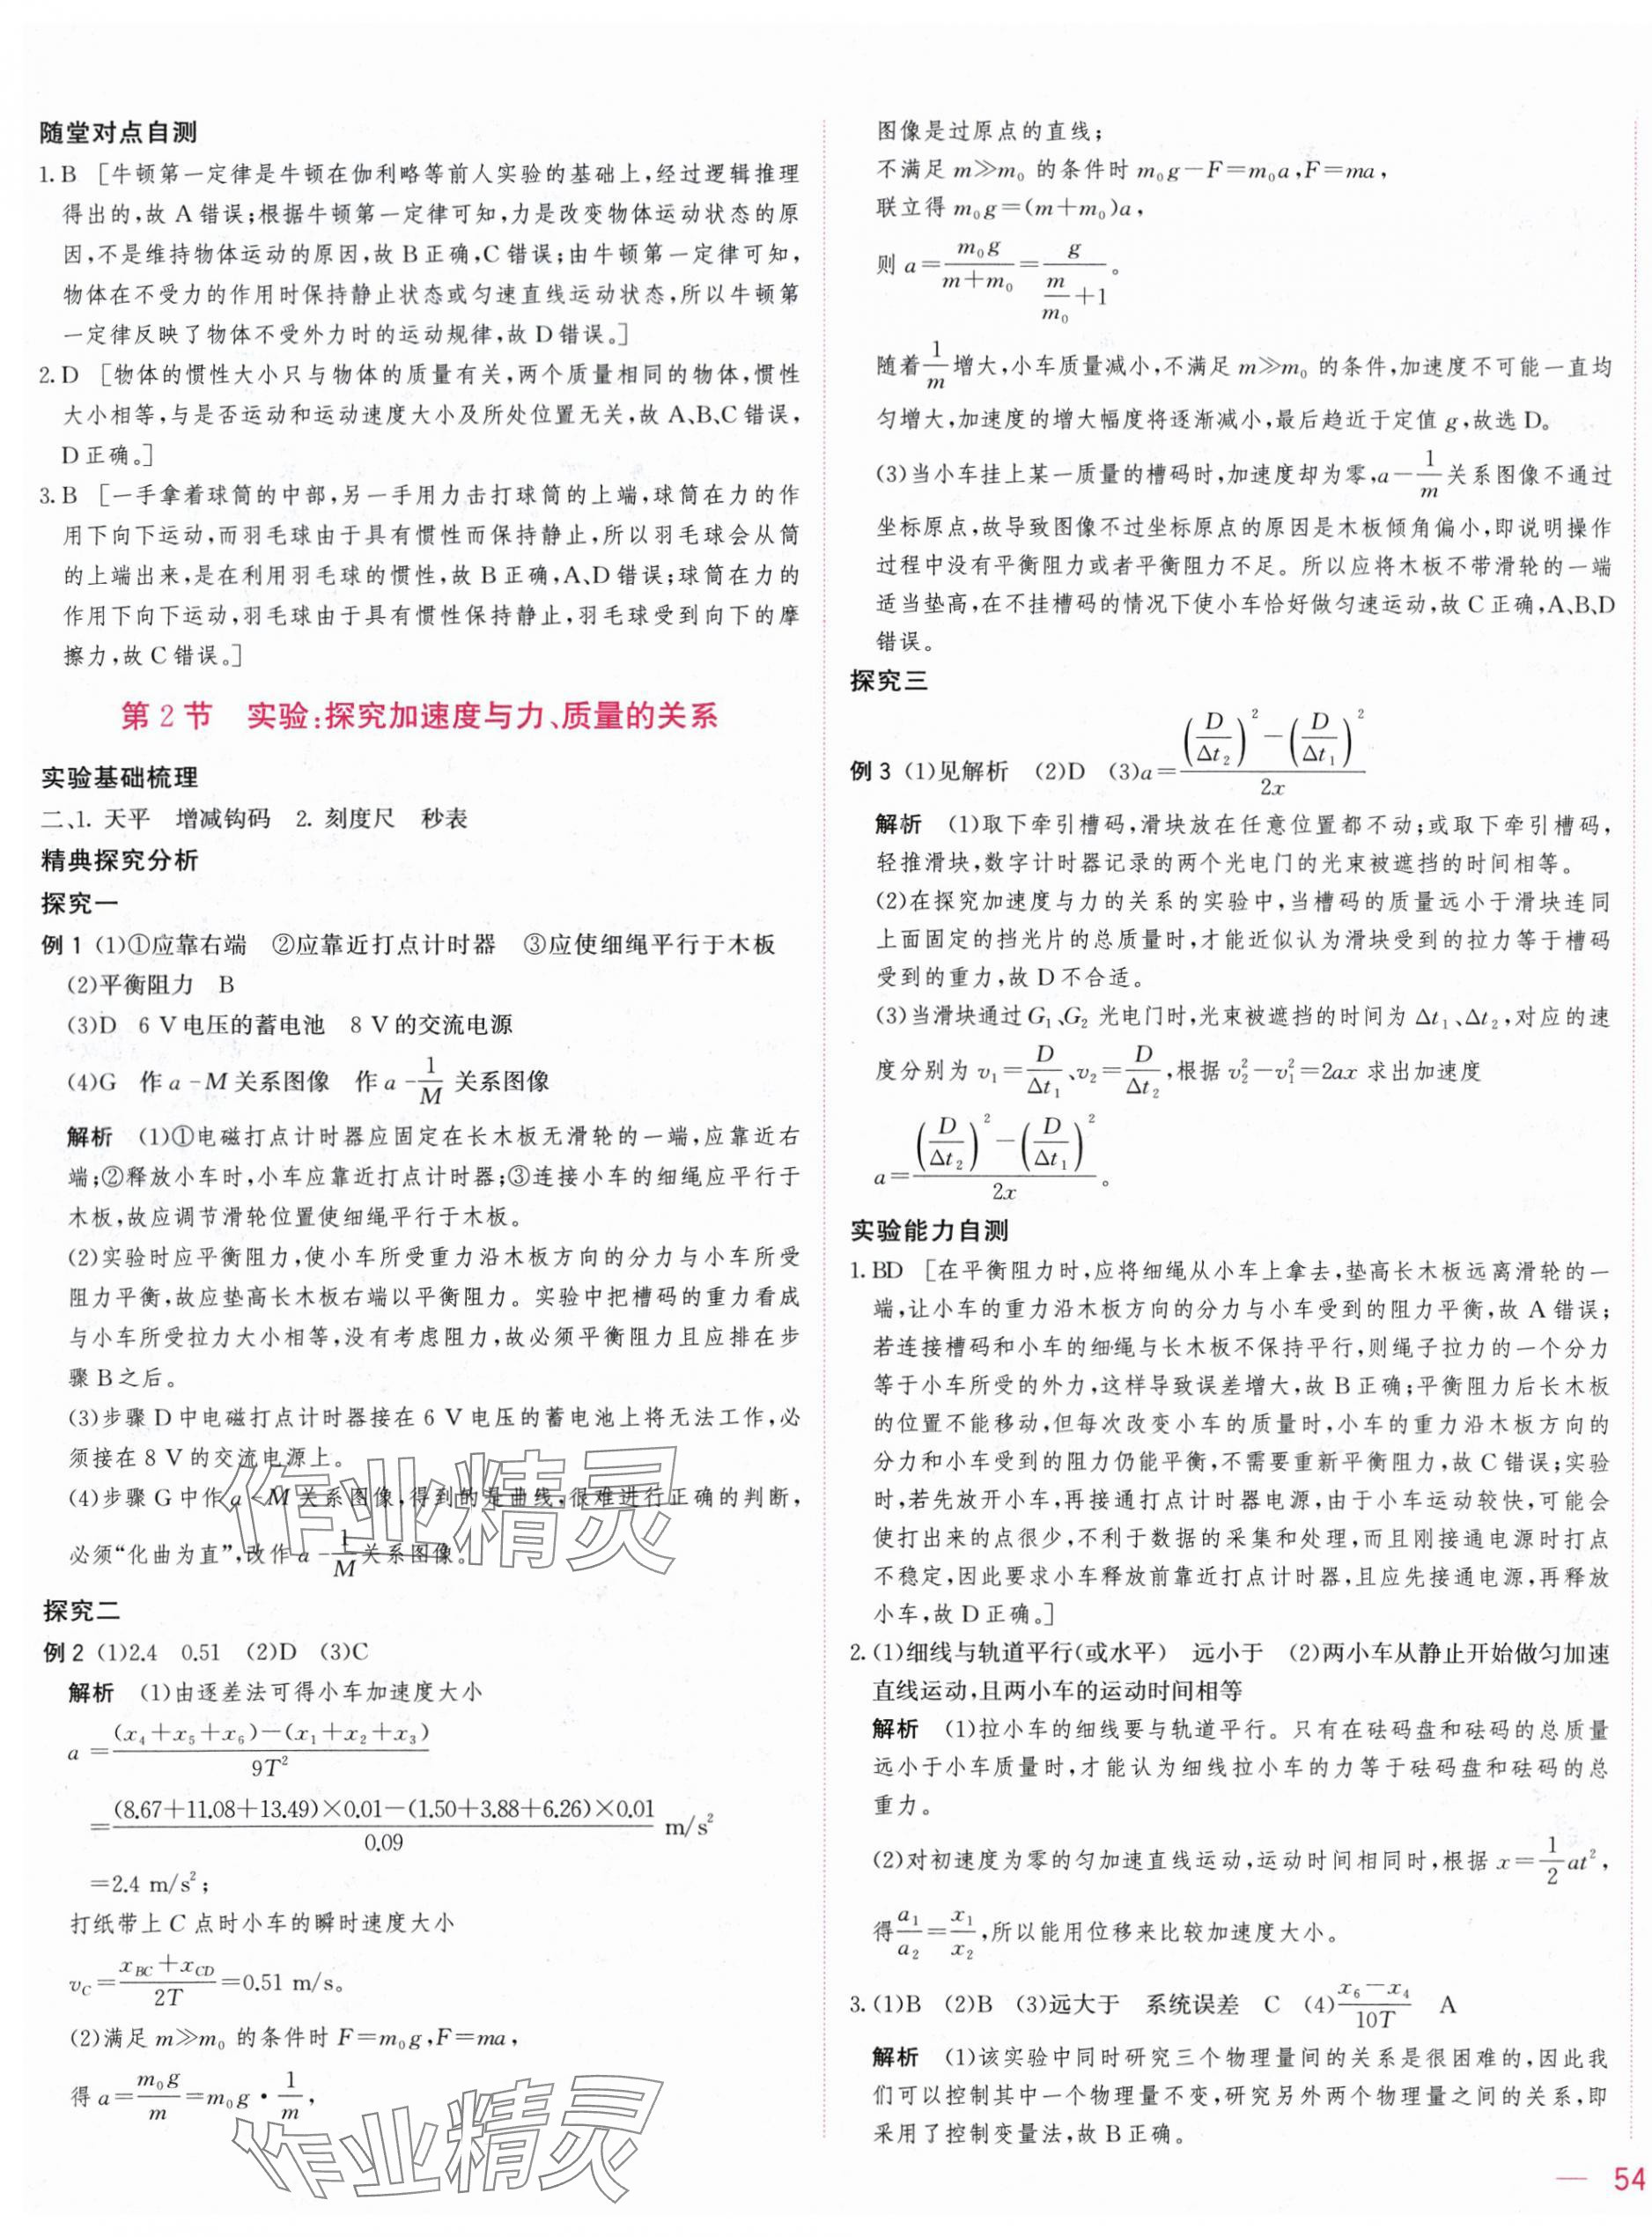 随堂对点自测
1. B [牛顿第一定律是牛顿在伽利略等前人实验的基础上,经过逻辑推理
得出的,故 A 错误;根据牛顿第一定律可知,力是改变物体运动状态的原
因,不是维持物体运动的原因,故 B 正确,C 错误;由牛顿第一定律可知,
物体在不受力的作用时保持静止状态或匀速直线运动状态,所以牛顿第
一定律反映了物体不受外力时的运动规律,故 D 错误。]
2. D [物体的惯性大小只与物体的质量有关,两个质量相同的物体,惯性
大小相等,与是否运动和运动速度大小及所处位置无关,故 A、B、C 错误,
D 正确。]
3. B [一手拿着球筒的中部,另一手用力击打球筒的上端,球筒在力的作
用下向下运动,而羽毛球由于具有惯性而保持静止,所以羽毛球会从筒
的上端出来,是在利用羽毛球的惯性,故 B 正确,A、D 错误;球筒在力的
作用下向下运动,羽毛球由于具有惯性保持静止,羽毛球受到向下的摩
擦力,故 C 错误。]
第 2 节 实验:探究加速度与力、质量的关系
实验基础梳理
二、1. 天平 增减钩码 2. 刻度尺 秒表
精典探究分析
探究一
例 1 (1)①应靠右端 ②应靠近打点计时器 ③应使细绳平行于木板
(2)平衡阻力 B
(3)D 6 V 电压的蓄电池 8 V 的交流电源
(4)G 作 a-M 关系图像 作 a-1/M 关系图像
解析 (1)①电磁打点计时器应固定在长木板无滑轮的一端,应靠近右
端;②释放小车时,小车应靠近打点计时器;③连接小车的细绳应平行于
木板,故应调节滑轮位置使细绳平行于木板。
(2)实验时应平衡阻力,使小车所受重力沿木板方向的分力与小车所受
阻力平衡,故应垫高长木板右端以平衡阻力。实验中把槽码的重力看成
与小车所受拉力大小相等,没有考虑阻力,故必须平衡阻力且应排在步
骤 B 之后。
(3)步骤 D 中电磁打点计时器接在 6 V 电压的蓄电池上将无法工作,必
须接在 8 V 的交流电源上。
(4)步骤 G 中作 a-M 关系图像,得到的是曲线,很难进行正确的判断,
必须“化曲为直”,改作 a-1/M 关系图像。
探究二
例 2 (1)2.4 0.51 (2)D (3)C
解析 (1)由逐差法可得小车加速度大小
a=((x₄+x₅+x₆)-(x₁+x₂+x₃))/9T²
=((8.67+11.08+13.49)×0.01-(1.50+3.88+6.26)×0.01)/0.09 m/s²
=2.4 m/s²;
打纸带上 C 点时小车的瞬时速度大小
v_C=(x_BC+x_CD)/2T=0.51 m/s。
(2)满足 m≫m₀ 的条件时 F=m₀g,F=ma,
得 a=m₀g/m=m₀g·1/m,
图像是过原点的直线;
不满足 m≫m₀ 的条件时 m₀g-F=m₀a,F=ma,
联立得 m₀g=(m+m₀)a,
则 a=m₀g/(m+m₀)=g/(m/m₀+1)。
随着1/m增大,小车质量减小,不满足 m≫m₀ 的条件,加速度不可能一直均
匀增大,加速度的增大幅度将逐渐减小,最后趋近于定值 g,故选 D。
(3)当小车挂上某一质量的槽码时,加速度却为零,a-1/m关系图像不通过
坐标原点,故导致图像不过坐标原点的原因是木板倾角偏小,即说明操作
过程中没有平衡阻力或者平衡阻力不足。所以应将木板不带滑轮的一端
适当垫高,在不挂槽码的情况下使小车恰好做匀速运动,故 C 正确,A、B、D
错误。
探究三
例 3 (1)见解析 (2)D (3)a=((D/Δt₂)²-(D/Δt₁)²)/2x
解析 (1)取下牵引槽码,滑块放在任意位置都不动;或取下牵引槽码,
轻推滑块,数字计时器记录的两个光电门的光束被遮挡的时间相等。
(2)在探究加速度与力的关系的实验中,当槽码的质量远小于滑块连同
上面固定的挡光片的总质量时,才能近似认为滑块受到的拉力等于槽码
受到的重力,故 D 不合适。
(3)当滑块通过 G₁、G₂ 光电门时,光束被遮挡的时间为 Δt₁、Δt₂,对应的速
度分别为 v₁=D/Δt₁、v₂=D/Δt₂,根据 v₂²-v₁²=2ax 求出加速度
a=((D/Δt₂)²-(D/Δt₁)²)/2x。
实验能力自测
1. BD [在平衡阻力时,应将细绳从小车上拿去,垫高长木板远离滑轮的一
端,让小车的重力沿木板方向的分力与小车受到的阻力平衡,故 A 错误;
若连接槽码和小车的细绳与长木板不保持平行,则绳子拉力的一个分力
等于小车所受的外力,这样导致误差增大,故 B 正确;平衡阻力后长木板
的位置不能移动,但每次改变小车的质量时,小车的重力沿木板方向的
分力和小车受到的阻力仍能平衡,不需要重新平衡阻力,故 C 错误;实验
时,若先放开小车,再接通打点计时器电源,由于小车运动较快,可能会
使打出来的点很少,不利于数据的采集和处理,而且刚接通电源时打点
不稳定,因此要求小车释放前靠近打点计时器,且应先接通电源,再释放
小车,故 D 正确。]
2. (1)细线与轨道平行(或水平) 远小于 (2)两小车从静止开始做匀加速
直线运动,且两小车的运动时间相等
解析 (1)拉小车的细线要与轨道平行。只有在砝码盘和砝码的总质量
远小于小车质量时,才能认为细线拉小车的力等于砝码盘和砝码的总
重力。
(2)对初速度为零的匀加速直线运动,运动时间相同时,根据 x=1/2at²,
得a₁/a₂=x₁/x₂,所以能用位移来比较加速度大小。
3. (1)B (2)B (3)远大于 系统误差 C (4)(x₆-x₄)/10T A
解析 (1)该实验中同时研究三个物理量间的关系是很困难的,因此我
们可以控制其中一个物理量不变,研究另外两个物理量之间的关系,即
采用了控制变量法,故 B 正确。
— 54
作业精灵
作业精灵